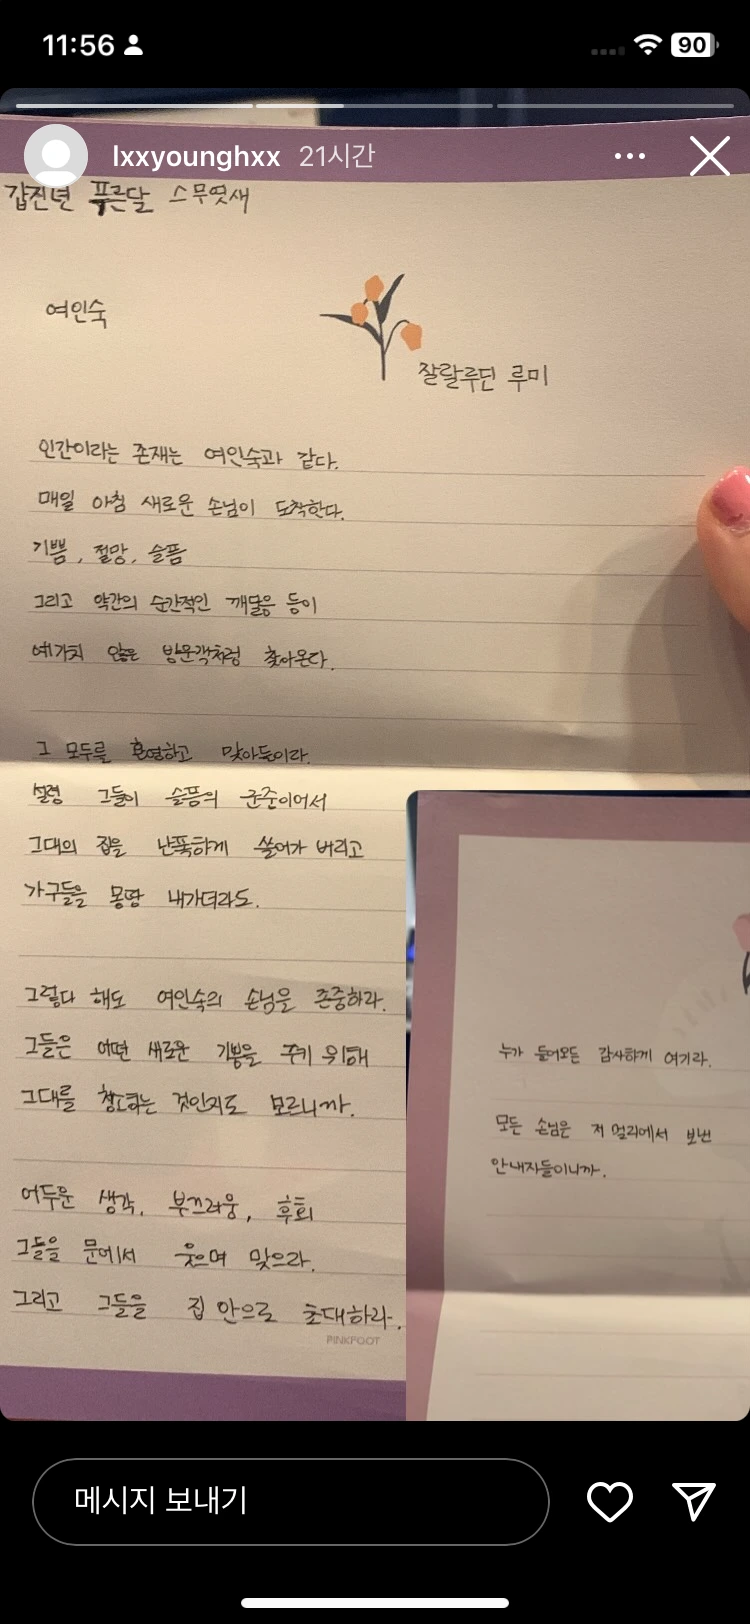 11:56
90
lxxyounghxx 21시간
갑진년 푸른달 스무엿새
여인숙
잘랄루딘 루미
인간이라는 존재는 여인숙과 같다.
매일 아침 새로운 손님이 도착한다.
기쁨, 절망, 슬픔
그리고 약간의 순간적인 깨달음 등이
예기치 않은 방문객처럼 찾아온다.
그 모두를 환영하고 맞아들이라.
설령 그들이 슬픔의 군중이어서
그대의 집을 난폭하게 쓸어가 버리고
가구들을 몽땅 내가더라도.
그렇다 해도 여인숙의 손님을 존중하라.
그들은 어떤 새로운 기쁨을 주기 위해
그대를 청소하는 것인지도 모르니까.
어두운 생각, 부끄러움, 후회
그들을 문에서 웃으며 맞으라.
그리고 그들을 집 안으로 초대하라.
PINKFOOT
누가 들어오든 감사하게 여기라.
모든 손님은 저 멀리에서 보낸
안내자들이니까.
메시지 보내기